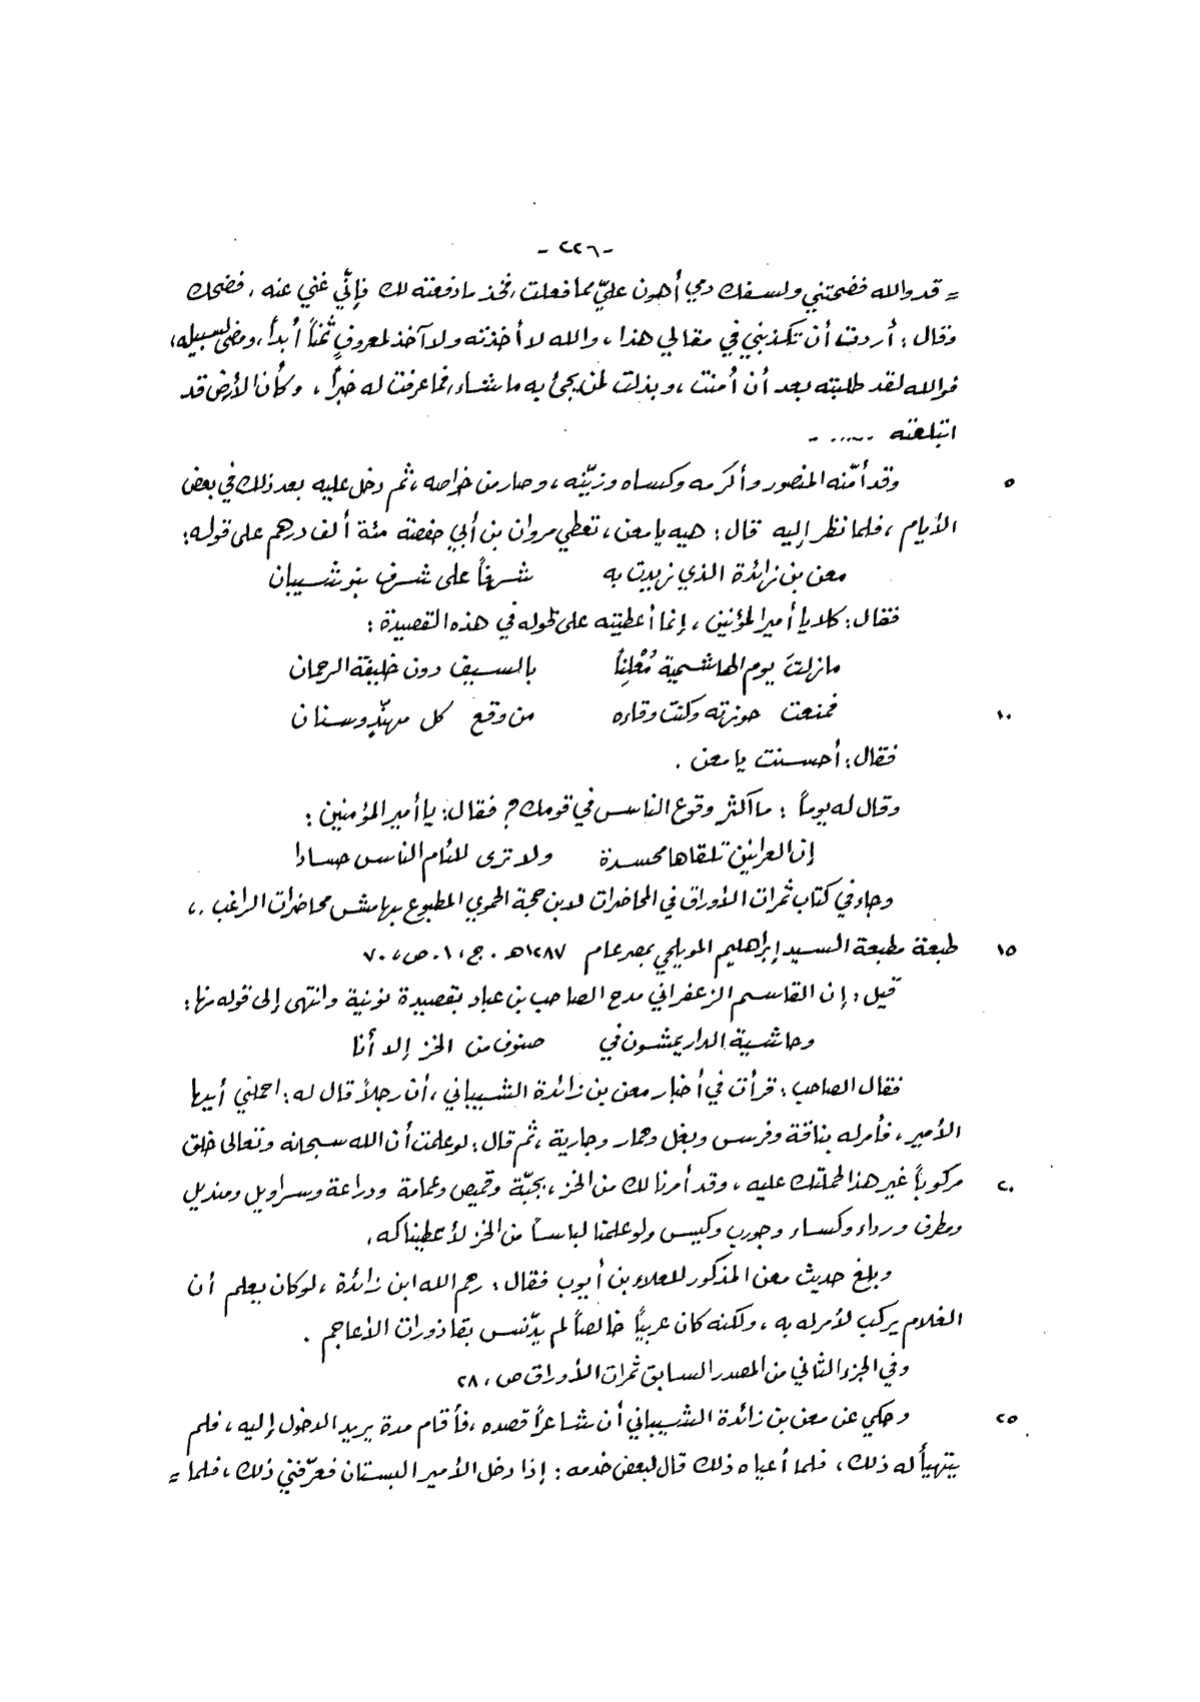 -٢٢٦-
= قد والله فضحتني ولسفك دمي أهون عليّ مما فعلت، فخذ ما دفعته لك فإنّي غني عنه، فضحك
وقال: أردت أن تكذبني في مقالي هذا، والله لا أخذته ولا آخذ لمعروفٍ ثمناً أبداً، ومضى لسبيله،
فوالله لقد طلبته بعد أن أُمنت، وبذلت لمن يجئ به ما شاء، فما عرفت له خبراً، وكأن الأرض قد
ابتلعته ...... -
وقد أمّنه المنصور وأكرمه وكساه وزيّنه، وصار من خواصه، ثم دخل عليه بعد ذلك في بعض ٥
الأيام، فلما نظر إليه قال: هيه يا معن، تعطي مروان بن أبي حفصة مئة ألف درهم على قوله:
معن بن زائدة الذي زيدت به شرفاً على شرف بنو شيبان
فقال: كلا يا أمير المؤمنين، إنما أعطيته على قوله في هذه القصيدة:
ما زلتَ يوم الهاشمية مُعْلِناً بالسيف دون خليفة الرحمان
فمنعت حوزته وكنت وقاءه من وقع كل مهنّدٍ وسنان ١٠
فقال: أحسنت يا معن.
وقال له يوماً: ما أكثر وقوع الناس في قومك؟ فقال: يا أمير المؤمنين:
إن العرانين تلقاها محسدة ولا ترى للئام الناس حسادا
وجاء في كتاب ثمرات الأوراق في المحاضرات لابن حجة الحموي المطبوع بهامش محاضرات الراغب.،
طبعة مطبعة السيد إبراهيم المويلحي بمصر عام ١٢٨٧هـ. ج، ١. ص، ٧٠ ١٥
قيل: إن القاسم الزعفراني مدح الصاحب بن عباد بقصيدة نونية وانتهى إلى قوله منها:
وحاشية الدار يمشون في صنوف من الخز إلا أنا
فقال الصاحب: قرأت في أخبار معن بن زائدة الشيباني، أن رجلاً قال له: احملني أيها
الأمير، فأمر له بناقة وفرس وبغل وحمار وجارية، ثم قال: لو علمت أن الله سبحانه وتعالى خلق
مركوباً غير هذا لحملتك عليه، وقد أمرنا لك من الخز، بجبّة وقميص وعمامة ودراعة وسراويل ومنديل ٢٠
ومطرف ورداء وكساء وجورب وكيس ولو علمنا لباساً من الخز لأعطيناكه.
وبلغ حديث معن المذكور للعلاء بن أيوب فقال: رحم الله ابن زائدة، لو كان يعلم أن
الغلام يركب لأمر له به، ولكنه كان عربيًا خالصاً لم يدّنس بقاذورات الأعاجم.
وفي الجزء الثاني من المصدر السابق ثمرات الأوراق ص، ٢٨
وحكي عن معن بن زائدة الشيباني أن شاعراً قصده، فأقام مدة يريد الدخول إليه، فلم ٢٥
يتهيأ له ذلك، فلما أعياه ذلك قال لبعض خدمه: إذا دخل الأمير البستان فعرّفني ذلك، فلما =